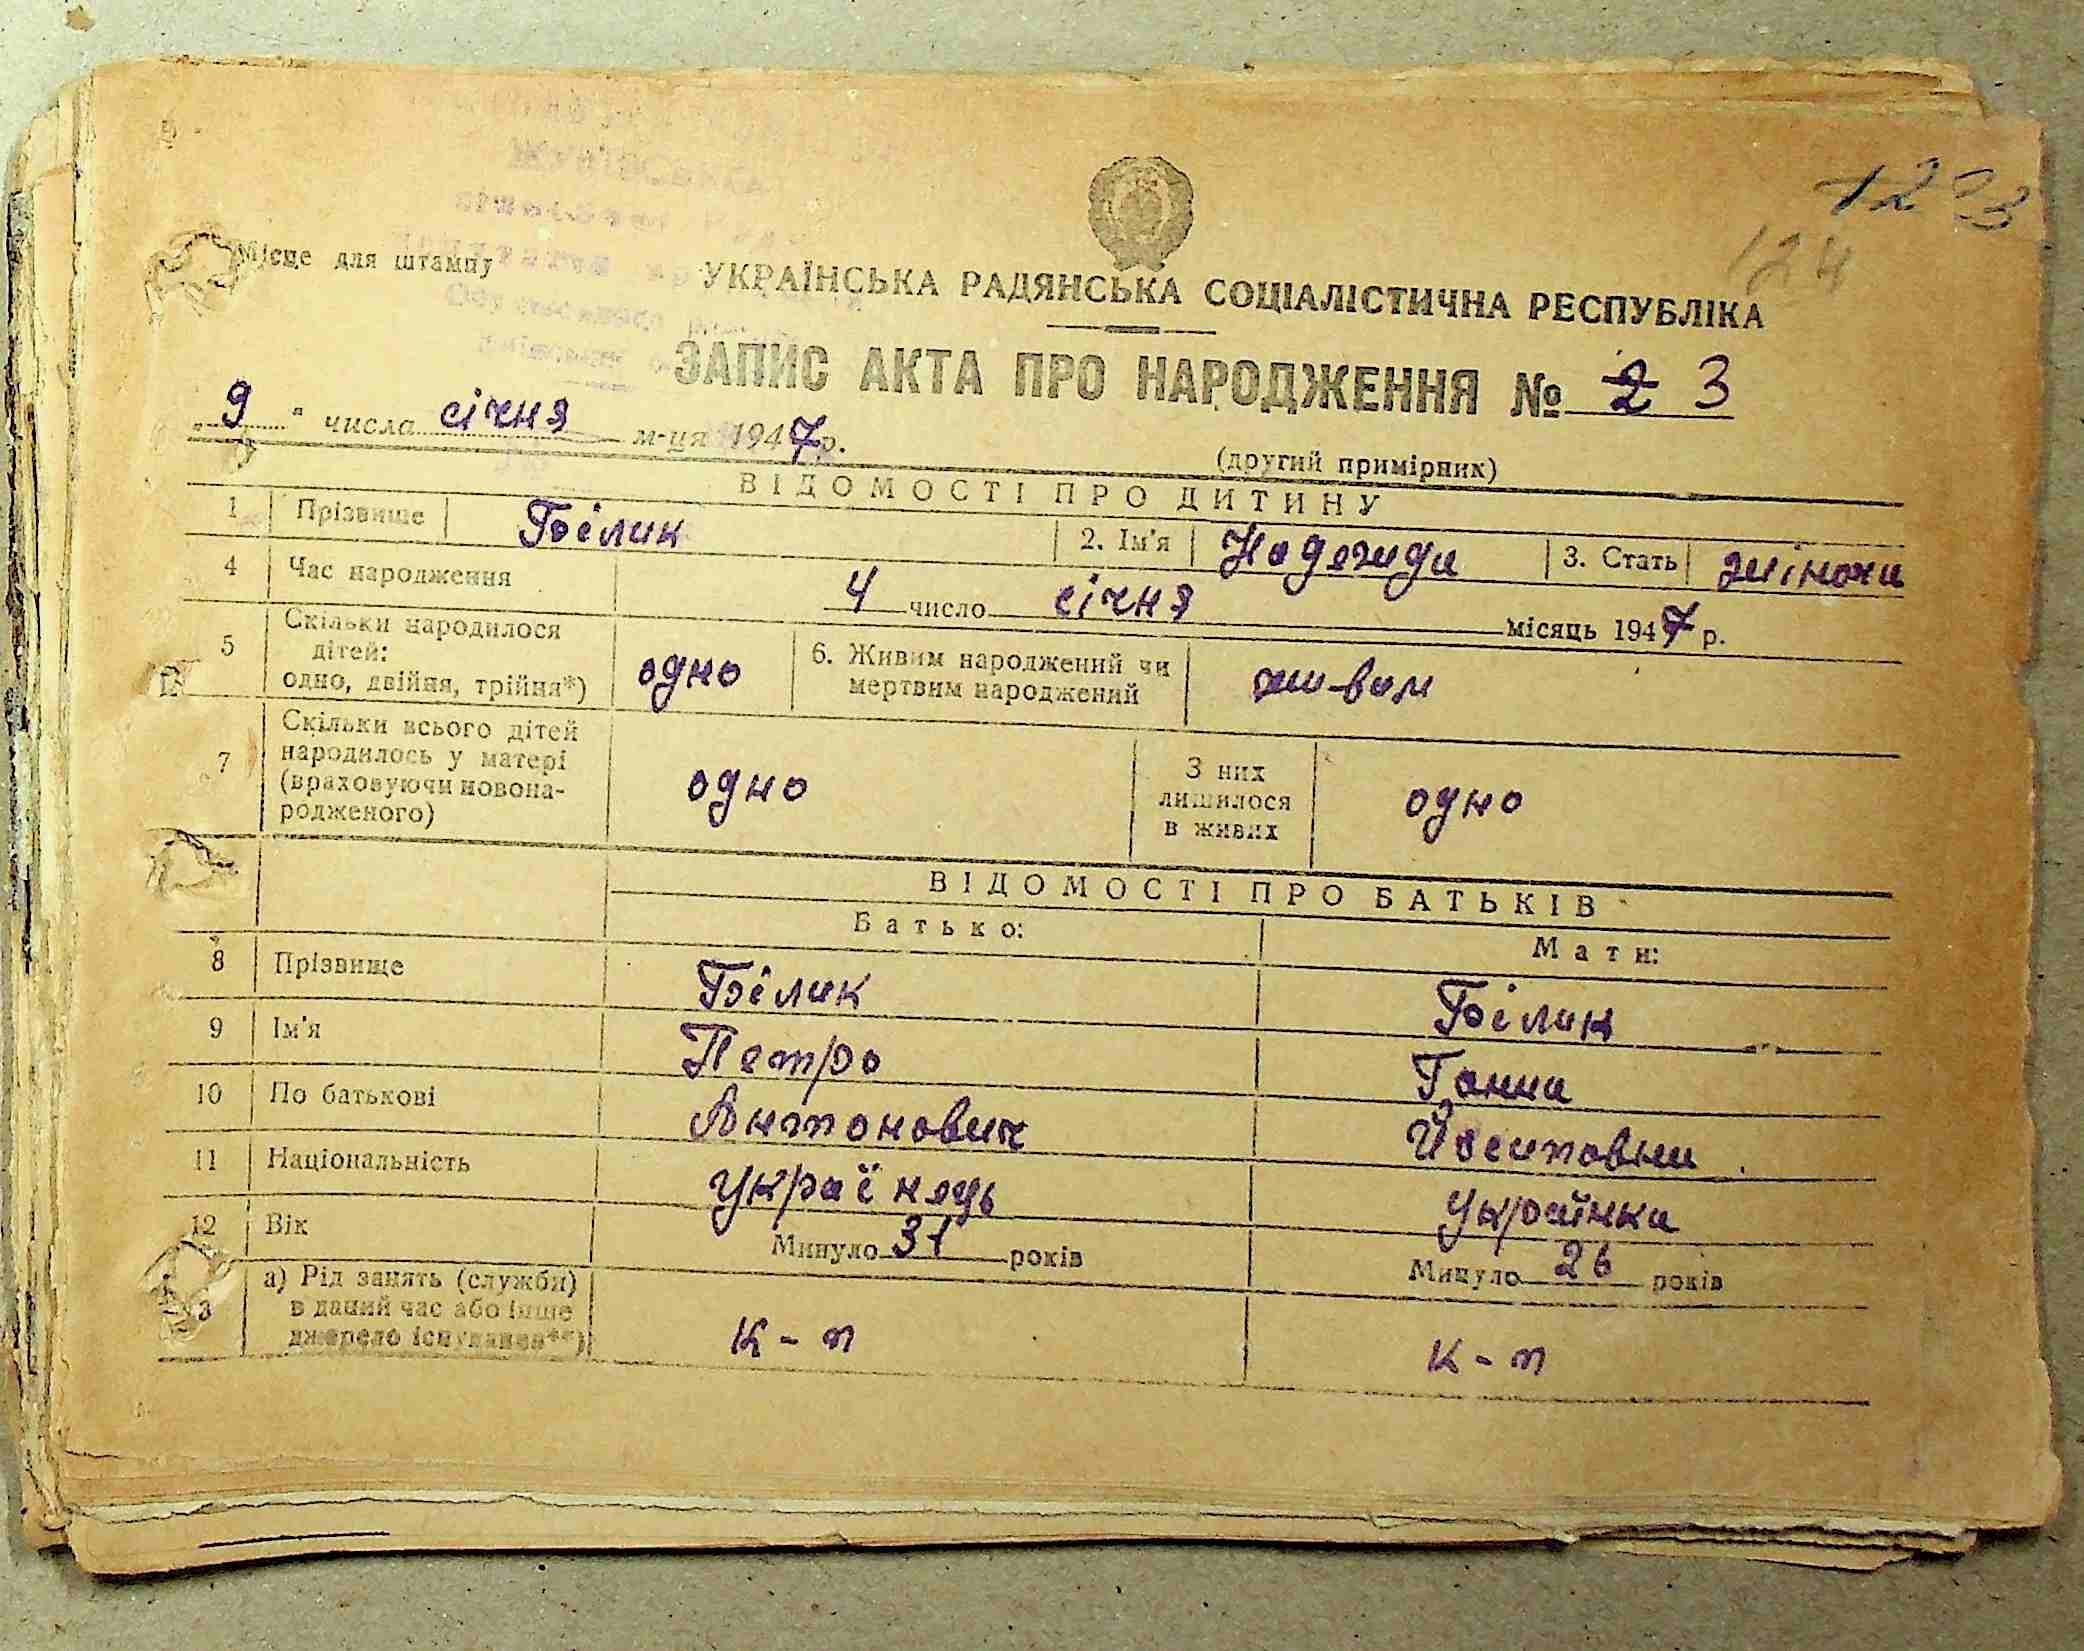 123
124
Місце для штампу
УКРАЇНСЬКА РАДЯНСЬКА СОЦІАЛІСТИЧНА РЕСПУБЛІКА
ЗАПИС АКТА ПРО НАРОДЖЕННЯ № 2 3
„9" числа січня м-ця 1947 р.
(другий примірник)
ВІДОМОСТІ ПРО ДИТИНУ
1 Прізвище Білик 2. Ім'я Надежда 3. Стать жіноча
4 Час народження 4 число січня місяць 1947 р.
5 Скільки народилося
дітей:
одно, двійня, трійня*) одно 6. Живим народжений чи
мертвим народжений живом
7 Скільки всього дітей
народилось у матері
(враховуючи новона-
родженого) одно З них
лишилося
в живих одно
ВІДОМОСТІ ПРО БАТЬКІВ
Батько: Мати:
8 Прізвище Білик Білик
9 Ім'я Петро Ганна
10 По батькові Антонович Йосиповна
11 Національність Українець Українка
12 Вік Минуло 31 років Минуло 26 років
3 а) Рід занять (служби)
в даний час або інше
джерело існування**) к-п к-п